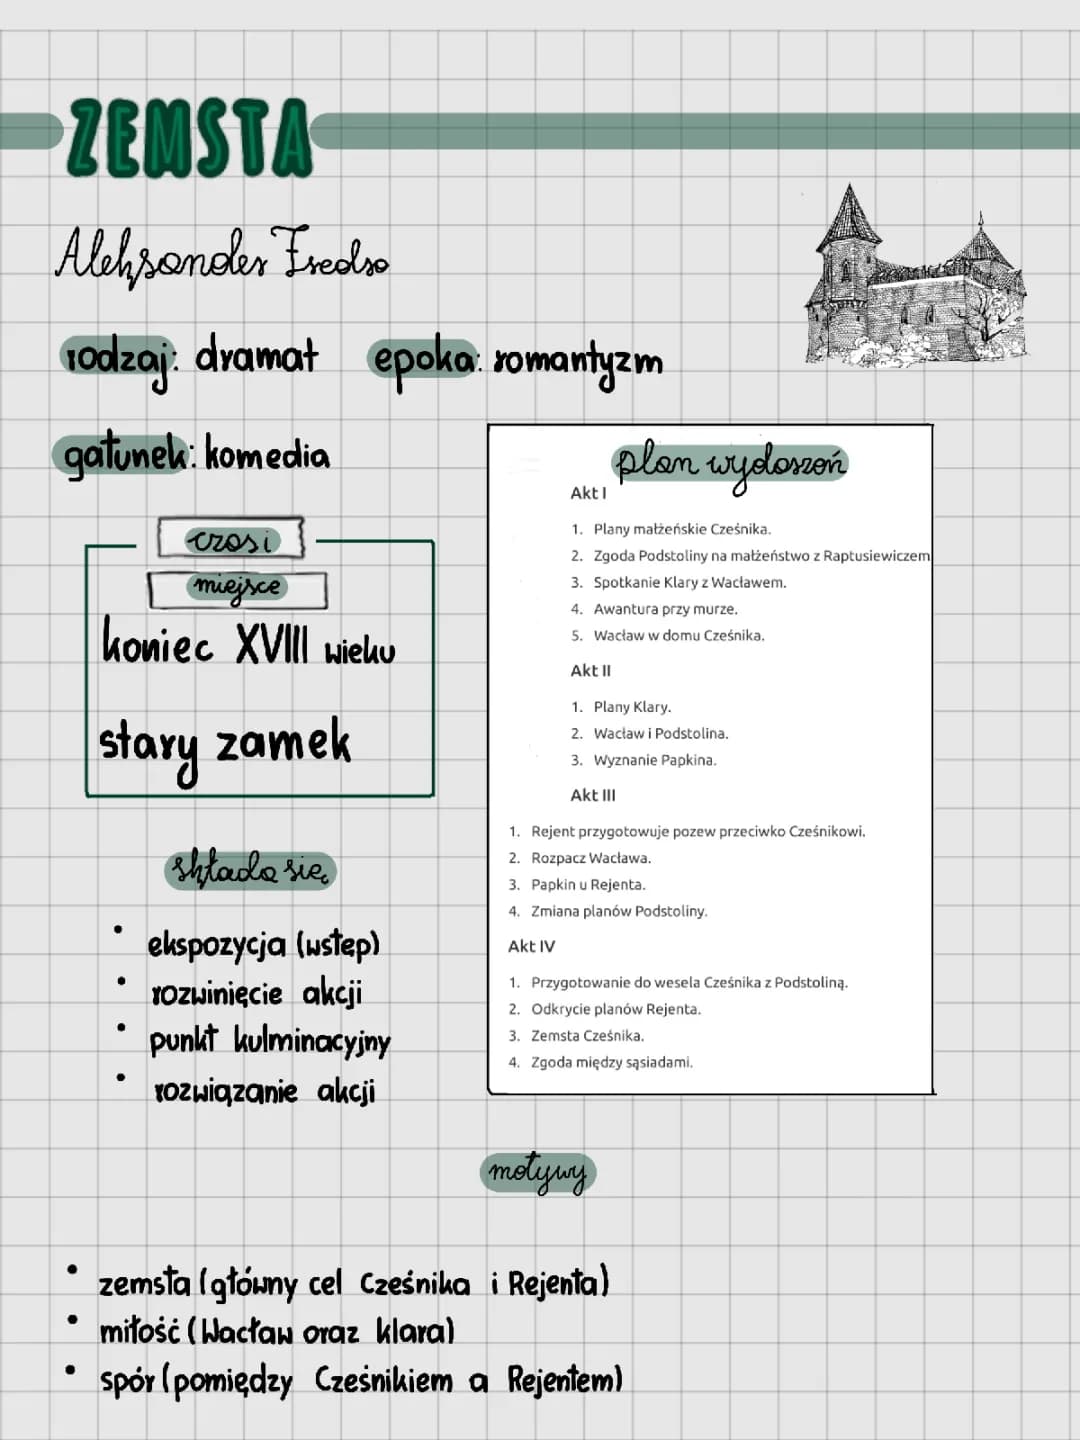 ZEMSTA
Aleksander Fredro
rodzaj: dramat epoka: romantyzm
gatunek: komedia
czas i
miejsce
koniec XVIII wieku
stary zamek
składa się
• ekspozycja (wstęp)
• rozwinięcie akcji
• punkt kulminacyjny
• rozwiązanie akcji
plan wydarzeń
Akt I
1. Plany małżeńskie Cześnika.
2. Zgoda Podstoliny na małżeństwo z Raptusiewiczem
3. Spotkanie Klary z Wacławem.
4. Awantura przy murze.
5. Wacław w domu Cześnika.
Akt II
1. Plany Klary.
2. Wacław i Podstolina.
3. Wyznanie Papkina.
Akt III
1. Rejent przygotowuje pozew przeciwko Cześnikowi.
2. Rozpacz Wacława.
3. Papkin u Rejenta.
4. Zmiana planów Podstoliny.
Akt IV
1. Przygotowanie do wesela Cześnika z Podstoliną.
2. Odkrycie planów Rejenta.
3. Zemsta Cześnika.
4. Zgoda między sąsiadami.
motywy
• zemsta (główny cel Cześnika i Rejenta)
• miłość (Wacław oraz klara)
• spór (pomiędzy Cześnikiem a Rejentem)